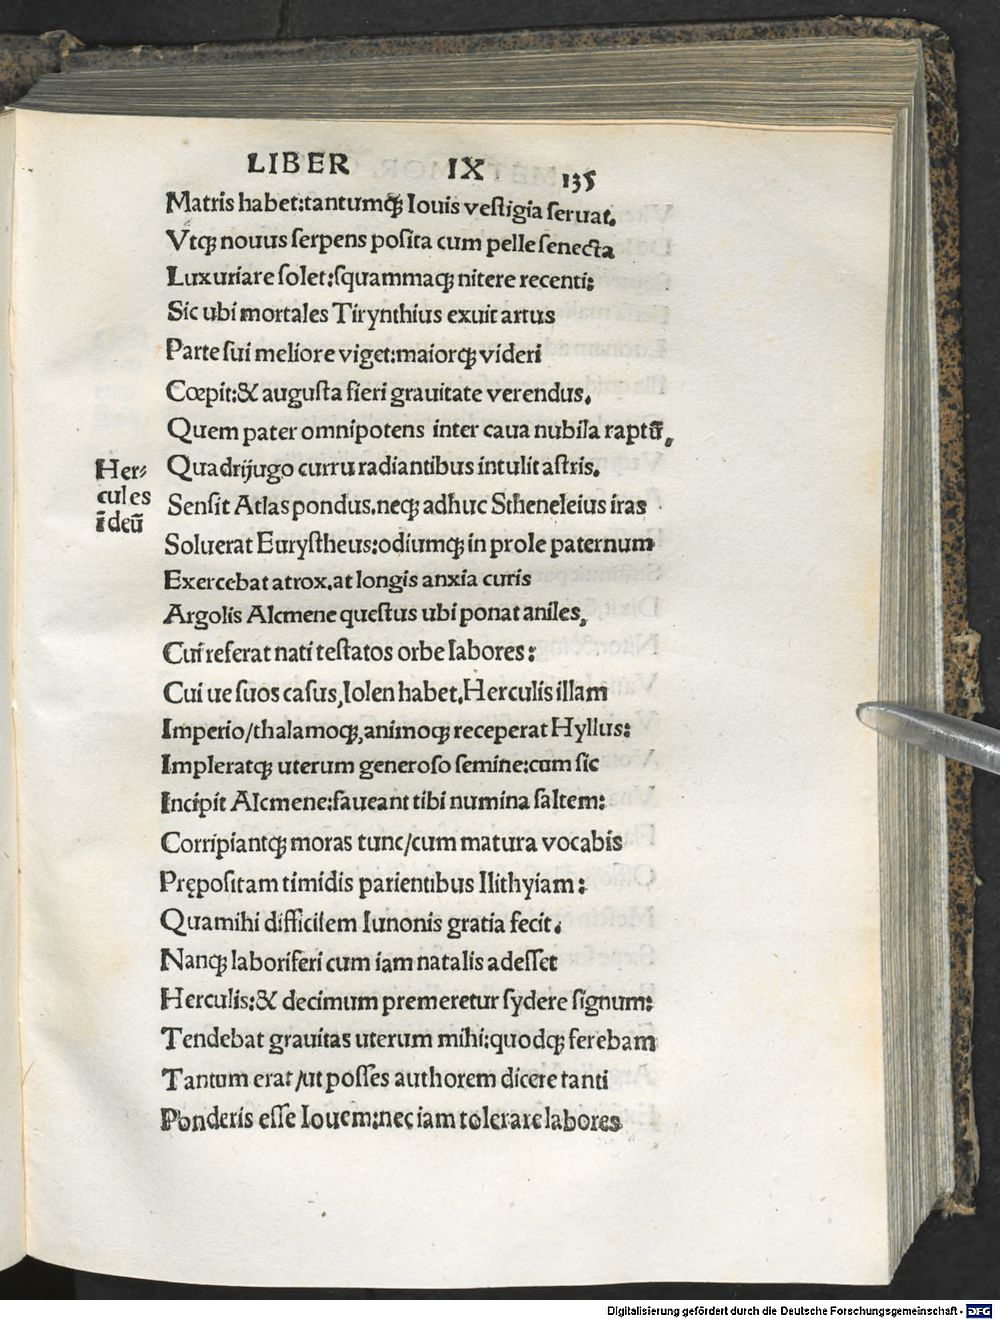 LIBER IX 135
Matris habet:tantumqꝫ Iouis vestigia seruat.
Vtqꝫ nouus serpens posita cum pelle senecta
Luxuriare solet:squammaqꝫ nitere recenti:
Sic ubi mortales Tirynthius exuit artus
Parte sui meliore viget:maiorqꝫ videri
Cœpit:& augusta fieri grauitate verendus.
Quem pater omnipotens inter caua nubila raptū,
Quadrijugo curru radiantibus intulit astris.
Her⸗
cules
ī deū
Sensit Atlas pondus.neqꝫ adhuc Stheneleius iras
Soluerat Eurystheus:odiumqꝫ in prole paternum
Exercebat atrox.at longis anxia curis
Argolis Alcmene questus ubi ponat aniles,
Cui referat nati testatos orbe labores:
Cui ue suos casus,Iolen habet.Herculis illam
Imperio/thalamoqꝫ,animoqꝫ receperat Hyllus:
Impleratqꝫ uterum generoso semine:cum sic
Incipit Alcmene:faueant tibi numina saltem:
Corripiantqꝫ moras tunc/cum matura vocabis
Prępositam timidis parientibus Ilithyiam:
Quamihi difficilem Iunonis gratia fecit.
Nanqꝫ laboriferi cum iam natalis adesset
Herculis:& decimum premeretur sydere signum:
Tendebat grauitas uterum mihi:quodqꝫ ferebam
Tantum erat/ut posses authorem dicere tanti
Ponderis esse Iouem:nec iam tolerare labores
Digitalisierung gefördert durch die Deutsche Forschungsgemeinschaft - DFG